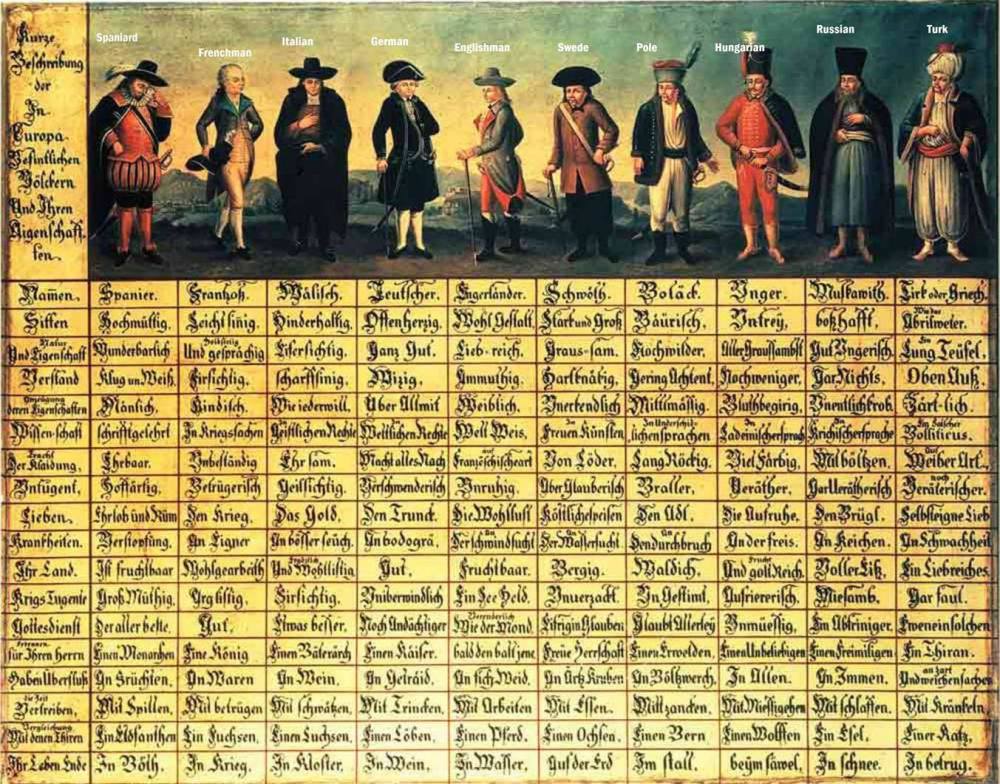 Spaniard
Frenchman
Italian
German
Englishman
Swede
Pole
Hungarian
Russian
Turk
Kurze
Beschreibung
der
In
Europa
Befintlichen
Völckern
Und Ihren
Aigenschaff-
ten.
Namen, Spanier. Frantzoß. Wälisch. Teutscher. Engerländer. Schwöth. Boläck. Unger. Muskawith. Tirk oder Griech.
Sitten Hochmüttig, Leicht sinig, Hinderhaltig, Offen herzig, Wohl Gestalt, Stark und Groß Bäurisch, Untrey, boßhafft, Wie das Abrilweter.
Natur Und Eigenschaft Wunderbarlich Und gesprächig Eifersichtig, Ganz Gut, Lieb-reich, Graus-sam, Nochwilder, Aller Graussambst Gut Ungerisch Ein Lung Teüfel,
Verstand Klug un Weiß, Firsichtig, scharffsinig, Wizig, Ammuthig, Hartknätig, Gering Achtent, Nochweniger, Gar Nichts, Oben Auß,
deren Eigenschaften Mänlich, Kindisch, Wie iederwill, Über Allmit Weiblich, Unerkendlich Mittlmässig, Bluthbegirig, Unentlich krob, Zärt-lich,
Wissenschaft schrifftgelehrt In Kriegssachen Geistlichen Rechte Weltlichen Rechte Welt Weis, In Freuen Künsten lichensprachen In Ladeinischersprach In Krichischersprache Ein Falscher Bolliticus.
Der Klaidung, Ehrbaar, Unbeständig Ehrsam, Macht alles Nach Auf Französchischeart Von Löder, Lang Röckig, Viel Färbig, Mit böltzen, Auf Weiber Art,
Untugent, Hoffärtig, Betrügerisch Geillsichtig, Verschwenderisch Unruhig, Aber Glauberisch Braller, Veräther, Gar Verätherisch noch Verätterischer.
Lieben, Ehrlob und Rüm Den Krieg, Das Gold, Den Trunck, Die Wohllust Köstlichespeisen Den Adl, Die Aufruhe, Den Brügl, Selbsteigne Lieb
Krankheiten. Verstopfung, An Eigner An bösser seüch, An bodogrä, An Der schwindsucht Der Wassersucht An Den durchbruch An der freis, An Keichen, An Schwachheit
Ihr Land. Ist fruchtbaar Wohlgearbeith Und Wohllistig Gut, Fruchtbaar, Bergig, Waldich, Und golt Reich, Voller Eiß, Ein Liebreiches
Krigs Tugente Groß Müthig, Arglistig, Firsichtig, Uniberwindlich Ein See Held, Unuerzackt, Un Gestimt, Aufriererisch, Miesamb, Gar faul.
Gottesdienst Der aller beste, Gut, Etwas besser, Noch Andächtiger Wie der Mond, Eifrig in Glauben Glaubt Allerley Unmüessig, Ein Abtriniger, Eweneinsolchen
für Ihren Herrn Einen Monarchen Eine König Einen Väterärch Einen Käiser, bald den balt jene Freüe Herrschaft Einen Erwelden, Einen Unbeliebigen Einen Freimilligen Ein Thiran.
Haben Überfluß An Früchten, An Waren An Wein, An Geträid, An fich Weid, An Ärtz Kruben An Böltzwerch, In Allen, An Immen, Und weichensachen
die Zeit Vertreiben, Mit Spillen, Mit betrügen Mit schwätzen, Mit Trincken, Mit Arbeiten Mit Essen, Mitt zancken, Mit Miessigehen Mit schlaffen, Mit Kränkeln,
Vergleichung Mit denen Thiren Ein Elofanthen Ein Fuchsen, Einen Luchsen, Einen Löben, Einen Pferd, Einen Ochsen, Einen Bern Einen Wolffen Ein Esel, Einer Katz,
Ihr Leben Ende In Böth, In Krieg, In Kloster, In Wein, In Wasser, Auf der Erd Im stall, beym säwel, In schnee, In betrug.